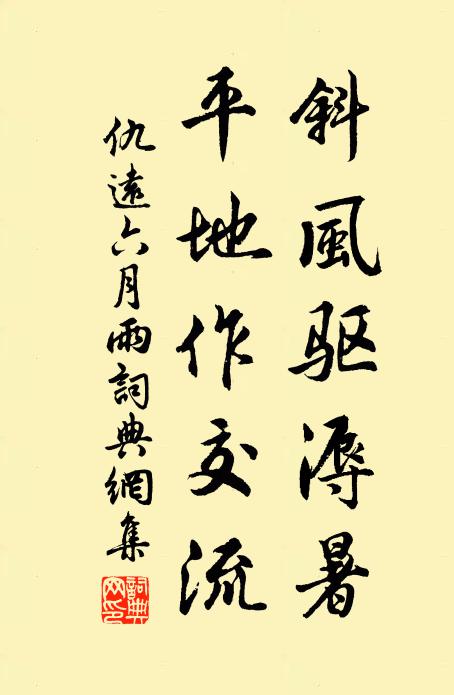 斜風驱溽暑
平地作交流
仇遠六月雨詞典網集
詞典网印